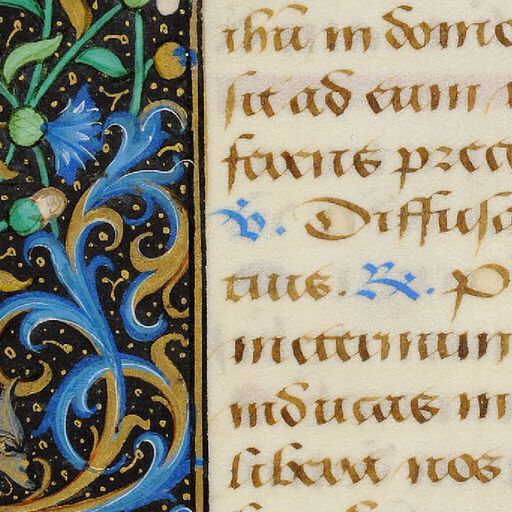 ihũ in domo
sit ad eum
ferens prec
℣. Diffusa
tuis. ℟. P
in eternum
inducas in
libera nos